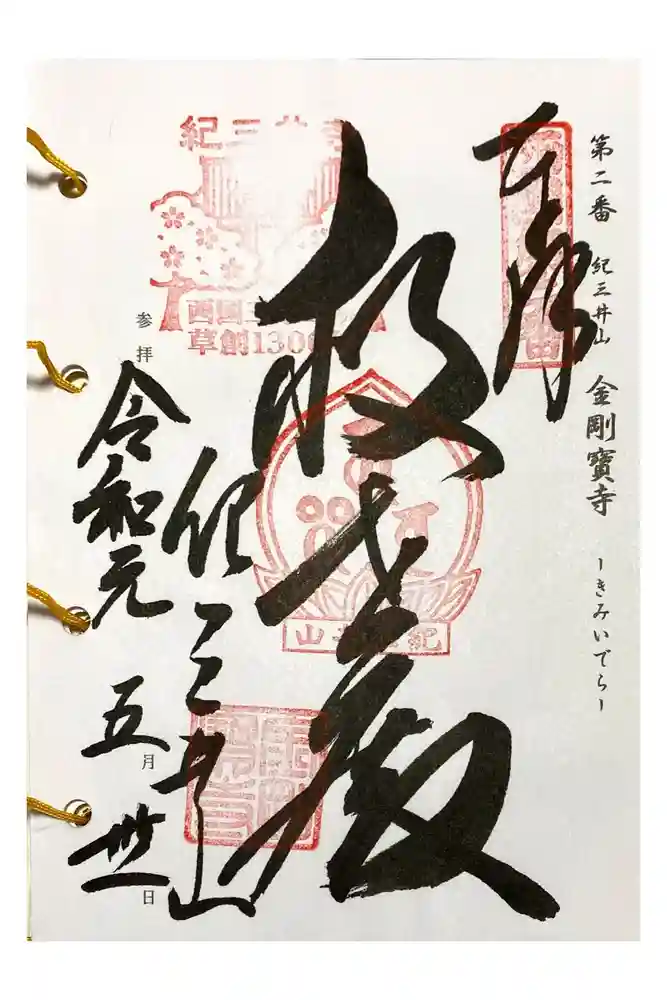 第二番 紀三井山 金剛寶寺 ーきみいでらー
奉拝
救世殿
紀三井山
参拝
令和元 五月 卅一日
紀三井寺
西国三
草創130
紀三井山